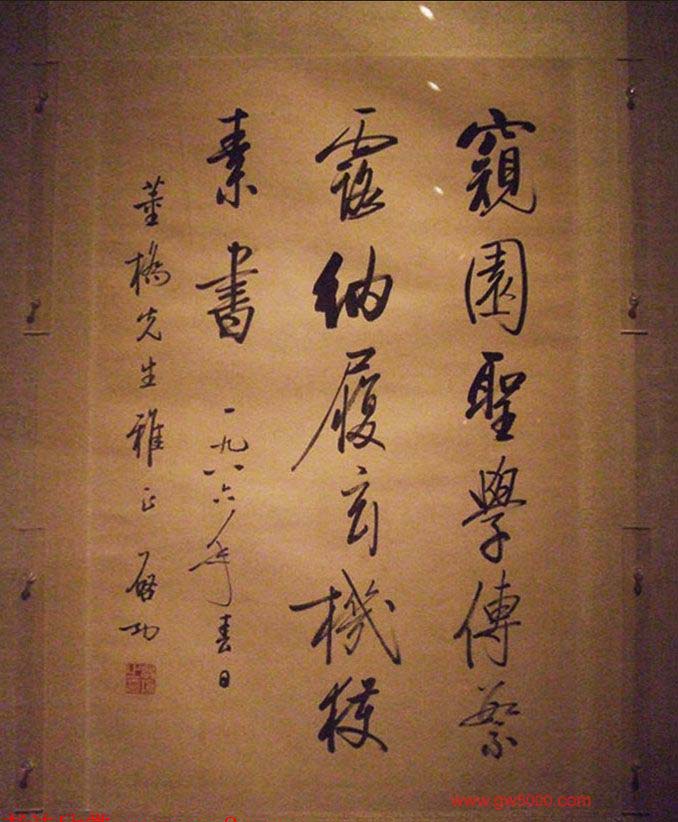 窺園聖學傳繁
露納履玄機獲
素書 一九八六年春日
董橋先生雅正 啓功
www.gw5000.com